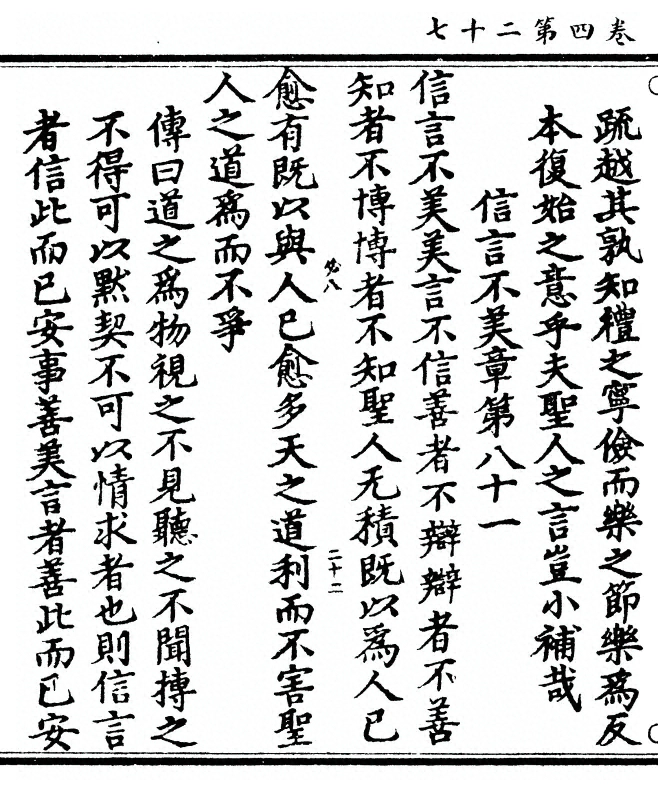 卷四第二十七
疏越其孰知禮之寧儉而樂之節樂爲反
本復始之意乎夫聖人之言豈小補哉
信言不美章第八十一
信言不美美言不信善者不辯辯者不善
知者不博博者不知聖人无積既以爲人已
二十二
愈有既以與人已愈多天之道利而不害聖
人之道爲而不爭
傳曰道之爲物視之不見聽之不聞摶之
不得可以默契不可以情求者也則信言
者信此而已安事善美言者善此而已安